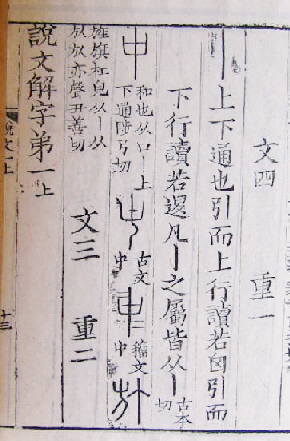 文四 重一
丨上下通也引而上行讀若囟引而
下行讀若凡丨之屬皆从丨古本切
中和也从口丨上下通陟弓切古文中籒文中
旌旗杠皃从丨从㫃㫃亦聲丑善切
文三 重二
說文解字第一上
說文一上
十三